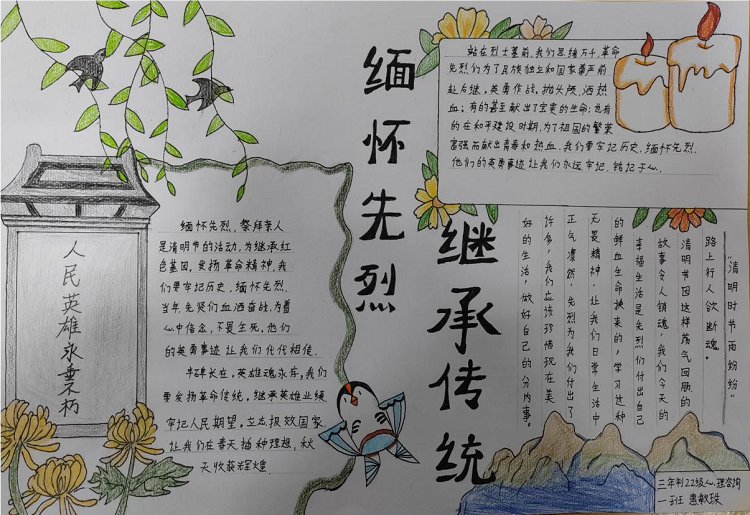 缅怀先烈
继承传统
人民英雄永垂不朽
缅怀先烈，祭拜亲人
是清明节的活动，为继承红
色基因，发扬革命精神，我
们要牢记历史，缅怀先烈。
当年，先贤们血洒奋战，为着
心中信念，不畏生死，他们
的英勇事迹让我们代代相传。
松柏长在，英雄魂永存，我们
要发扬革命传统，继承英雄业绩
牢记人民期望，立志报效国家
让我们在春天播种理想，秋
天收获辉煌
站在烈士墓前，我们思绪万千，革命
先烈们为了民族独立和国家尊严前
赴后继，英勇作战，抛头颅、洒热
血；有的甚至献出了宝贵的生命；也有
的在和平建设时期，为了祖国的繁荣
富强而献出青春和热血。我们要牢记历史，缅怀先烈，
他们的英勇事迹让我们永远牢记，铭记于心。
“清明时节雨纷纷
路上行人欲断魂。”
清明节因这样荡气回肠的
故事令人销魂，我们今天的
幸福生活是先烈们付出自己
的鲜血生命换来的，学习这种
无畏精神，让我们日常生活中
正气凛然，先烈为我们付出了
许多，我们应该珍惜现在美
好的生活，做好自己的分内事。
三年制22级心理咨询
一班 惠敏珠